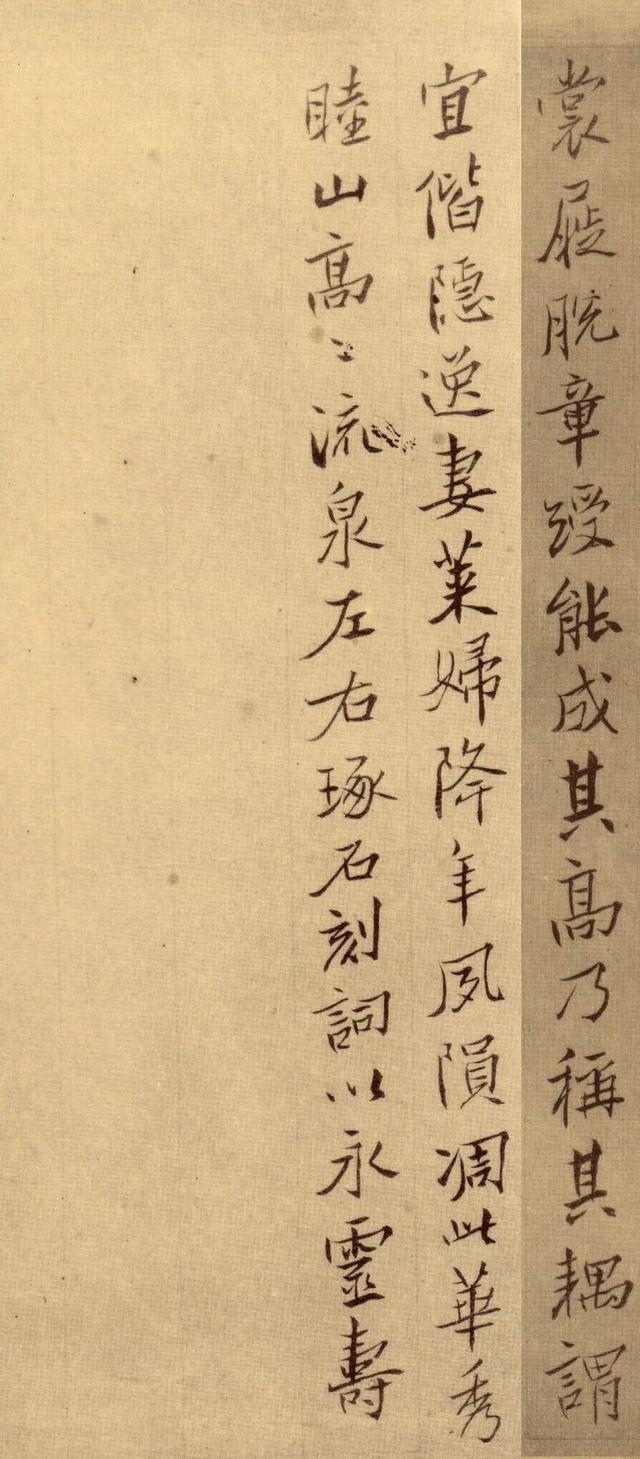 裳屣脱章綬能成其高乃稱其耦謂
宜偕隱逸妻萊婦降年夙隕凋此華秀
睦山高〻流泉左右琢石刻詞以永靈壽